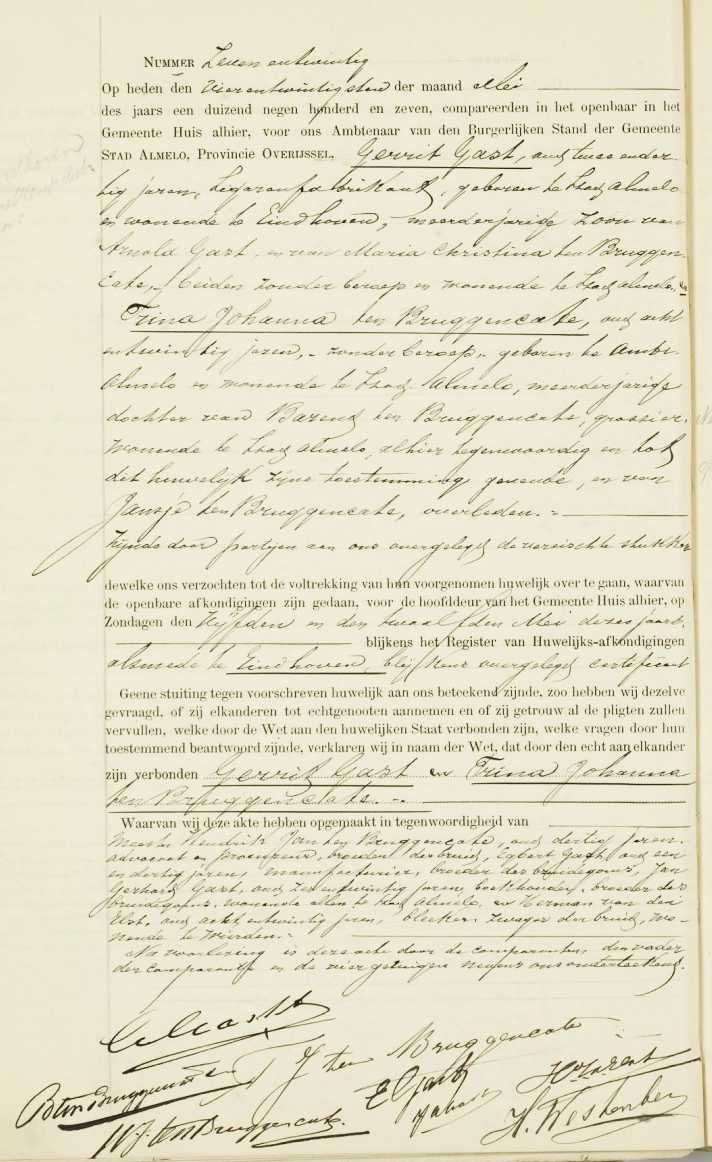 NUMMER Zeven en twintig
Op heden den Vierentwintigsten der maand Mei
des jaars een duizend negen honderd en zeven, compareerden in het openbaar in het
Gemeente Huis alhier, voor ons Ambtenaar van den Burgerlijken Stand der Gemeente
STAD ALMELO, Provincie OVERIJSSEL, Gerrit Gast, oud twee en der-
tig jaren, sigarenfabrikant, geboren te Stad Almelo
en wonende te Eindhoven, meerderjarige zoon van
Arnold Gast, en van Maria Christina ten Bruggen-
Cate, beiden zonder beroep en wonende te Stad Almelo, en
Trina Johanna ten Bruggencate, oud acht
en twintig jaren, zonder beroep, geboren te Ambt-
Almelo en wonende te Stad Almelo, meerderjarige
dochter van Barend ten Bruggencate, grossier,
wonende te Stad Almelo, alhier tegenwoordig en tot
dit huwelijk zijne toestemming gevende, en van
Jansje ten Bruggencate, overleden.
Zijnde door partijen aan ons overgelegd de vereischte stukken
dewelke ons verzochten tot de voltrekking van hun voorgenomen huwelijk over te gaan, waarvan
de openbare afkondigingen zijn gedaan, voor de hoofddeur van het Gemeente Huis alhier, op
Zondagen den Vijfden en den twaalfden Mei dezes jaars,
blijkens het Register van Huwelijks-afkondigingen
alsmede te Eindhoven, blijkens overgelegd certificaat
Geene stuiting tegen voorschreven huwelijk aan ons beteekend zijnde, zoo hebben wij dezelve
gevraagd, of zij elkanderen tot echtgenooten aannemen en of zij getrouw al de pligten zullen
vervullen, welke door de Wet aan den huwelijken Staat verbonden zijn, welke vragen door hun
toestemmend beantwoord zijnde, verklaren wij in naam der Wet, dat door den echt aan elkander
zijn verbonden Gerrit Gast en Trina Johanna
ten Bruggencate.
Waarvan wij deze akte hebben opgemaakt in tegenwoordigheid van
Meester Hendrik Jan ten Bruggencate, oud dertig jaren,
advocaat en procureur, broeder der bruid, Egbert Gast, oud een
en dertig jaren, manufacturier, broeder des bruidegoms, Jan
Gerhard Gast, oud zevenentwintig jaren, boekhouder, broeder des
bruidegoms, wonende allen te Stad Almelo, en Herman van der
Elst, oud acht en twintig jaren, bleeker, zwager der bruid, wo-
nende te Wierden.
Na voorlezing is deze akte door de comparanten, den vader
der comparante en de vier getuigen nevens ons onderteekend.
G Gast
T J ten Bruggencate
B ten Bruggencate
E Gast
H J ten Bruggencate.
H. Westenberg